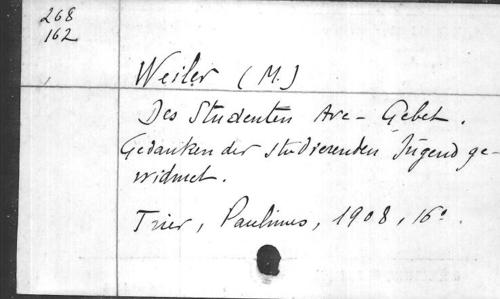 268
162
Weiler (M.)
Des Studenten Ave-Gebet.
Gedanken der studierenden Jugend ge-
widmet.
Trier, Paulinus, 1908, 16°.